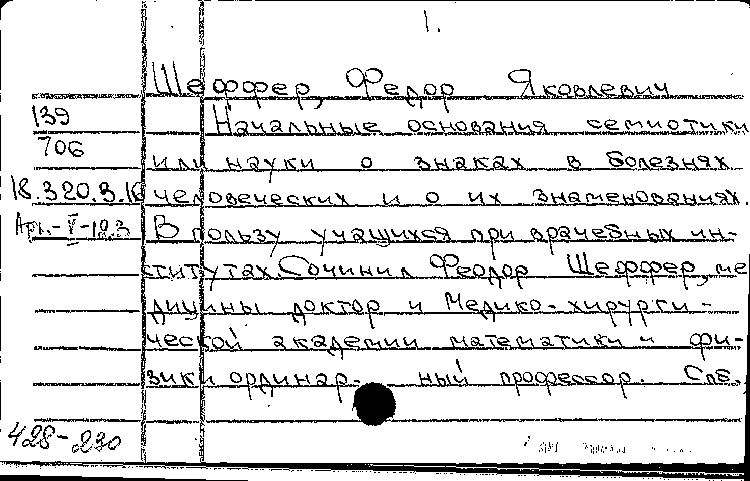 1.
Шеффер, Федор Яковлевич
139
Начальные основания семиотики
706
или науки о знаках в болезнях
18.320.3.16
человеческих и о их знаменованиях.
В пользу учащихся при врачебных ин-
ститутах. Сочинил Феодор Шеффер, ме
дицины доктор и Медико-хирурги-
ческой академии математики и фи-
зики ординар- ный профессор. Спб.,
428-230